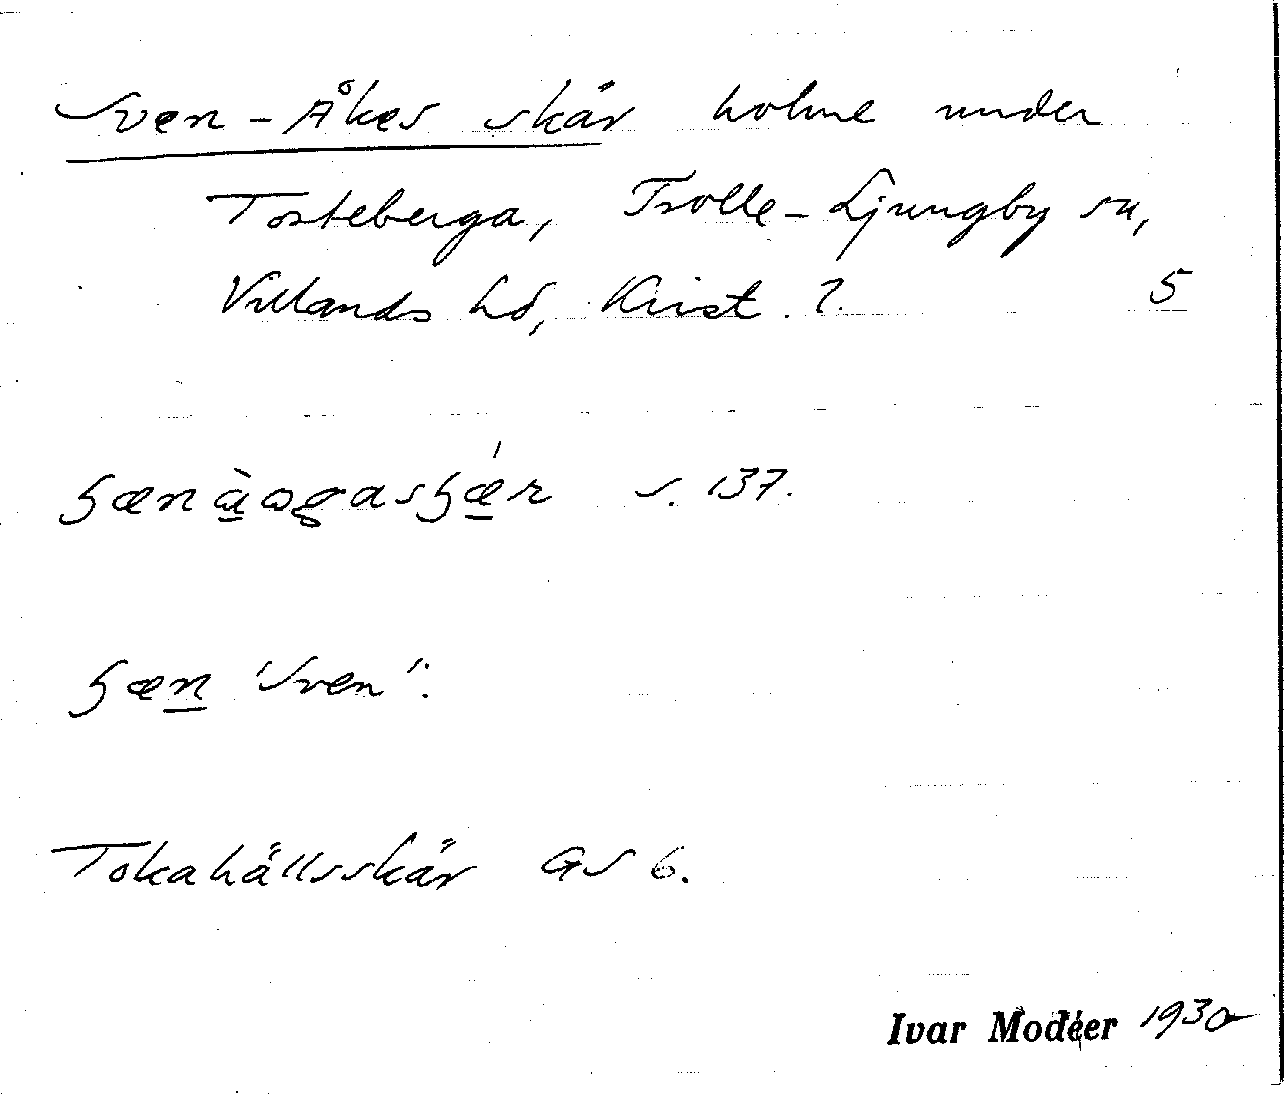 Sven-Åkes skär holme under
Tosteberga, Trolle-Ljungby sn,
Villands hd, Krist. l. 5
s. 137.
'Sven'.
Tokahällsskär GS 6.
Ivar Modéer 1930